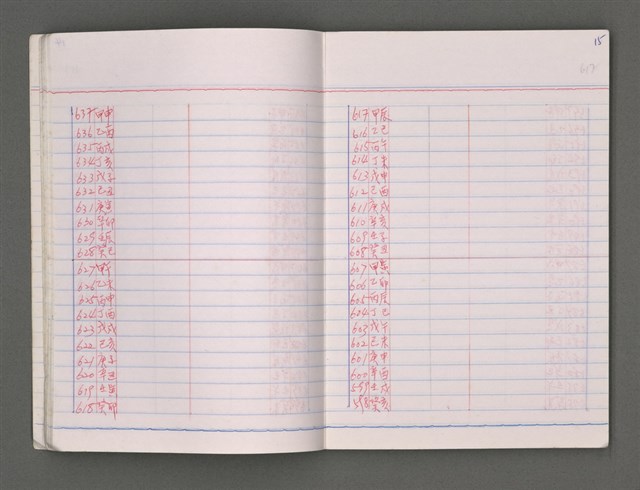 637甲申
636乙酉
635丙戌
634丁亥
633戊子
632己丑
631庚寅
630辛卯
629壬辰
628癸巳
627甲午
626乙未
625丙申
624丁酉
623戊戌
622己亥
621庚子
620辛丑
619壬寅
618癸卯
15
617
617甲辰
616乙巳
615丙午
614丁未
613戊申
612己酉
611庚戌
610辛亥
609壬子
608癸丑
607甲寅
606乙卯
605丙辰
604丁巳
603戊午
602己未
601庚申
600辛酉
599壬戌
598癸亥